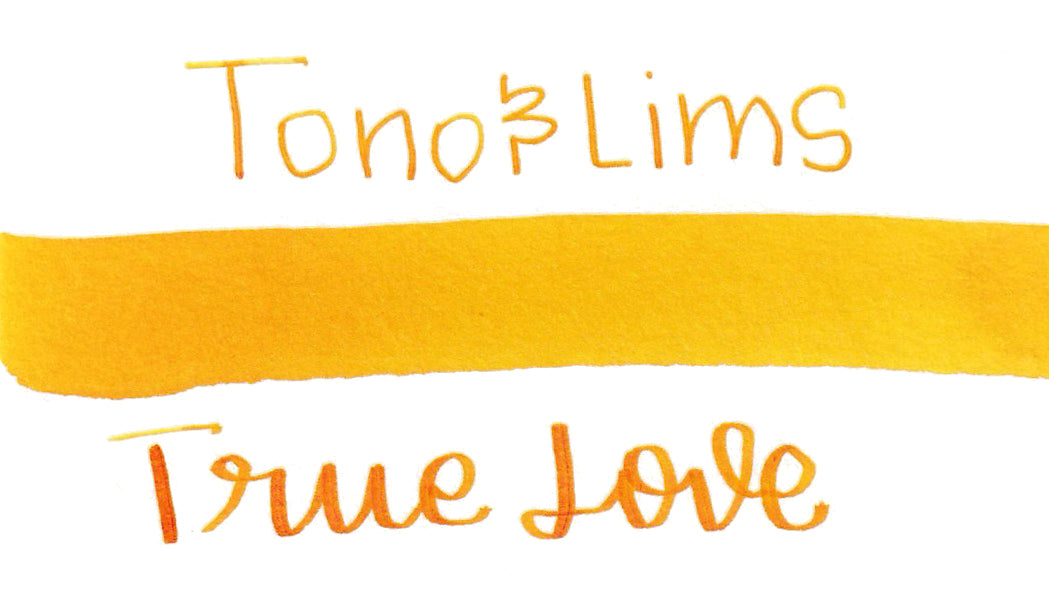 Tono & Lims
True Love